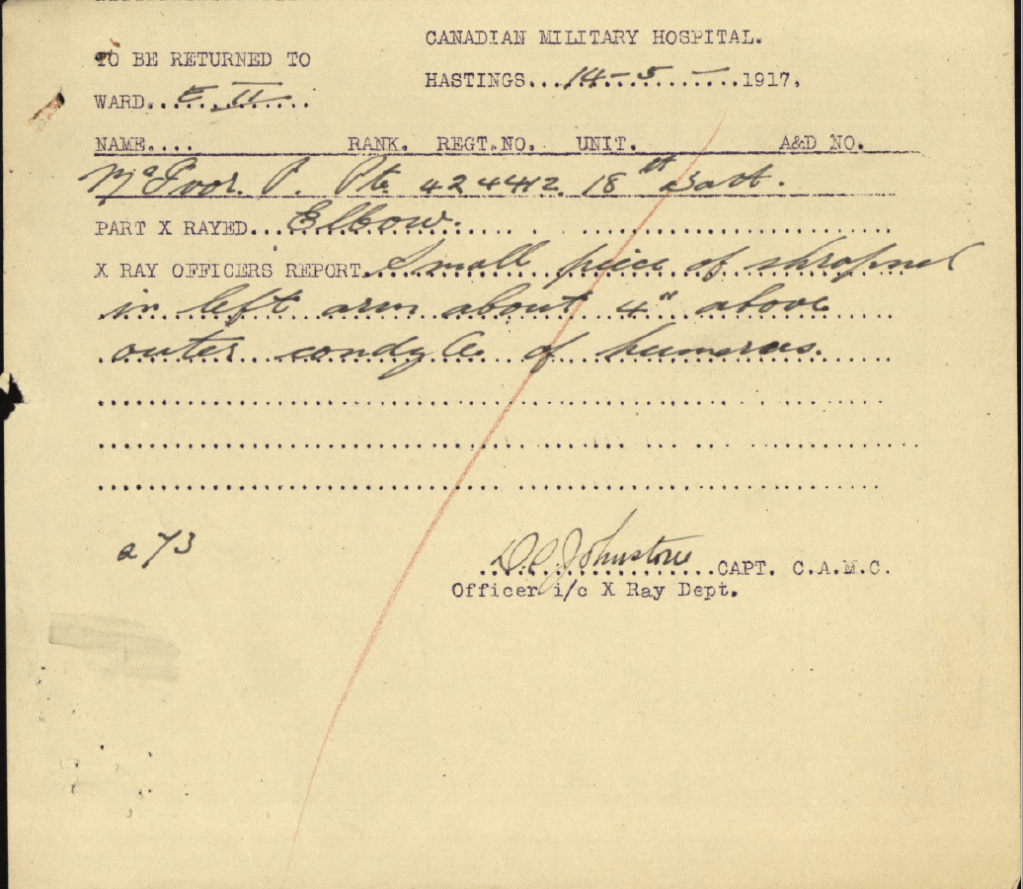 CANADIAN MILITARY HOSPITAL.
TO BE RETURNED TO
HASTINGS...14-5-....1917,
WARD..E.II......
NAME.... RANK. REGT.NO. UNIT. A&D NO.
McIvor. P. Pte 424412 18th Batt.
PART X RAYED...Elbow.
X RAY OFFICERS REPORT. Small piece of shrapnel
in left arm about 4" above
outer condyle of humerus.
a 73
D C Johnstone CAPT. C.A.M.C.
Officer i/c X Ray Dept.